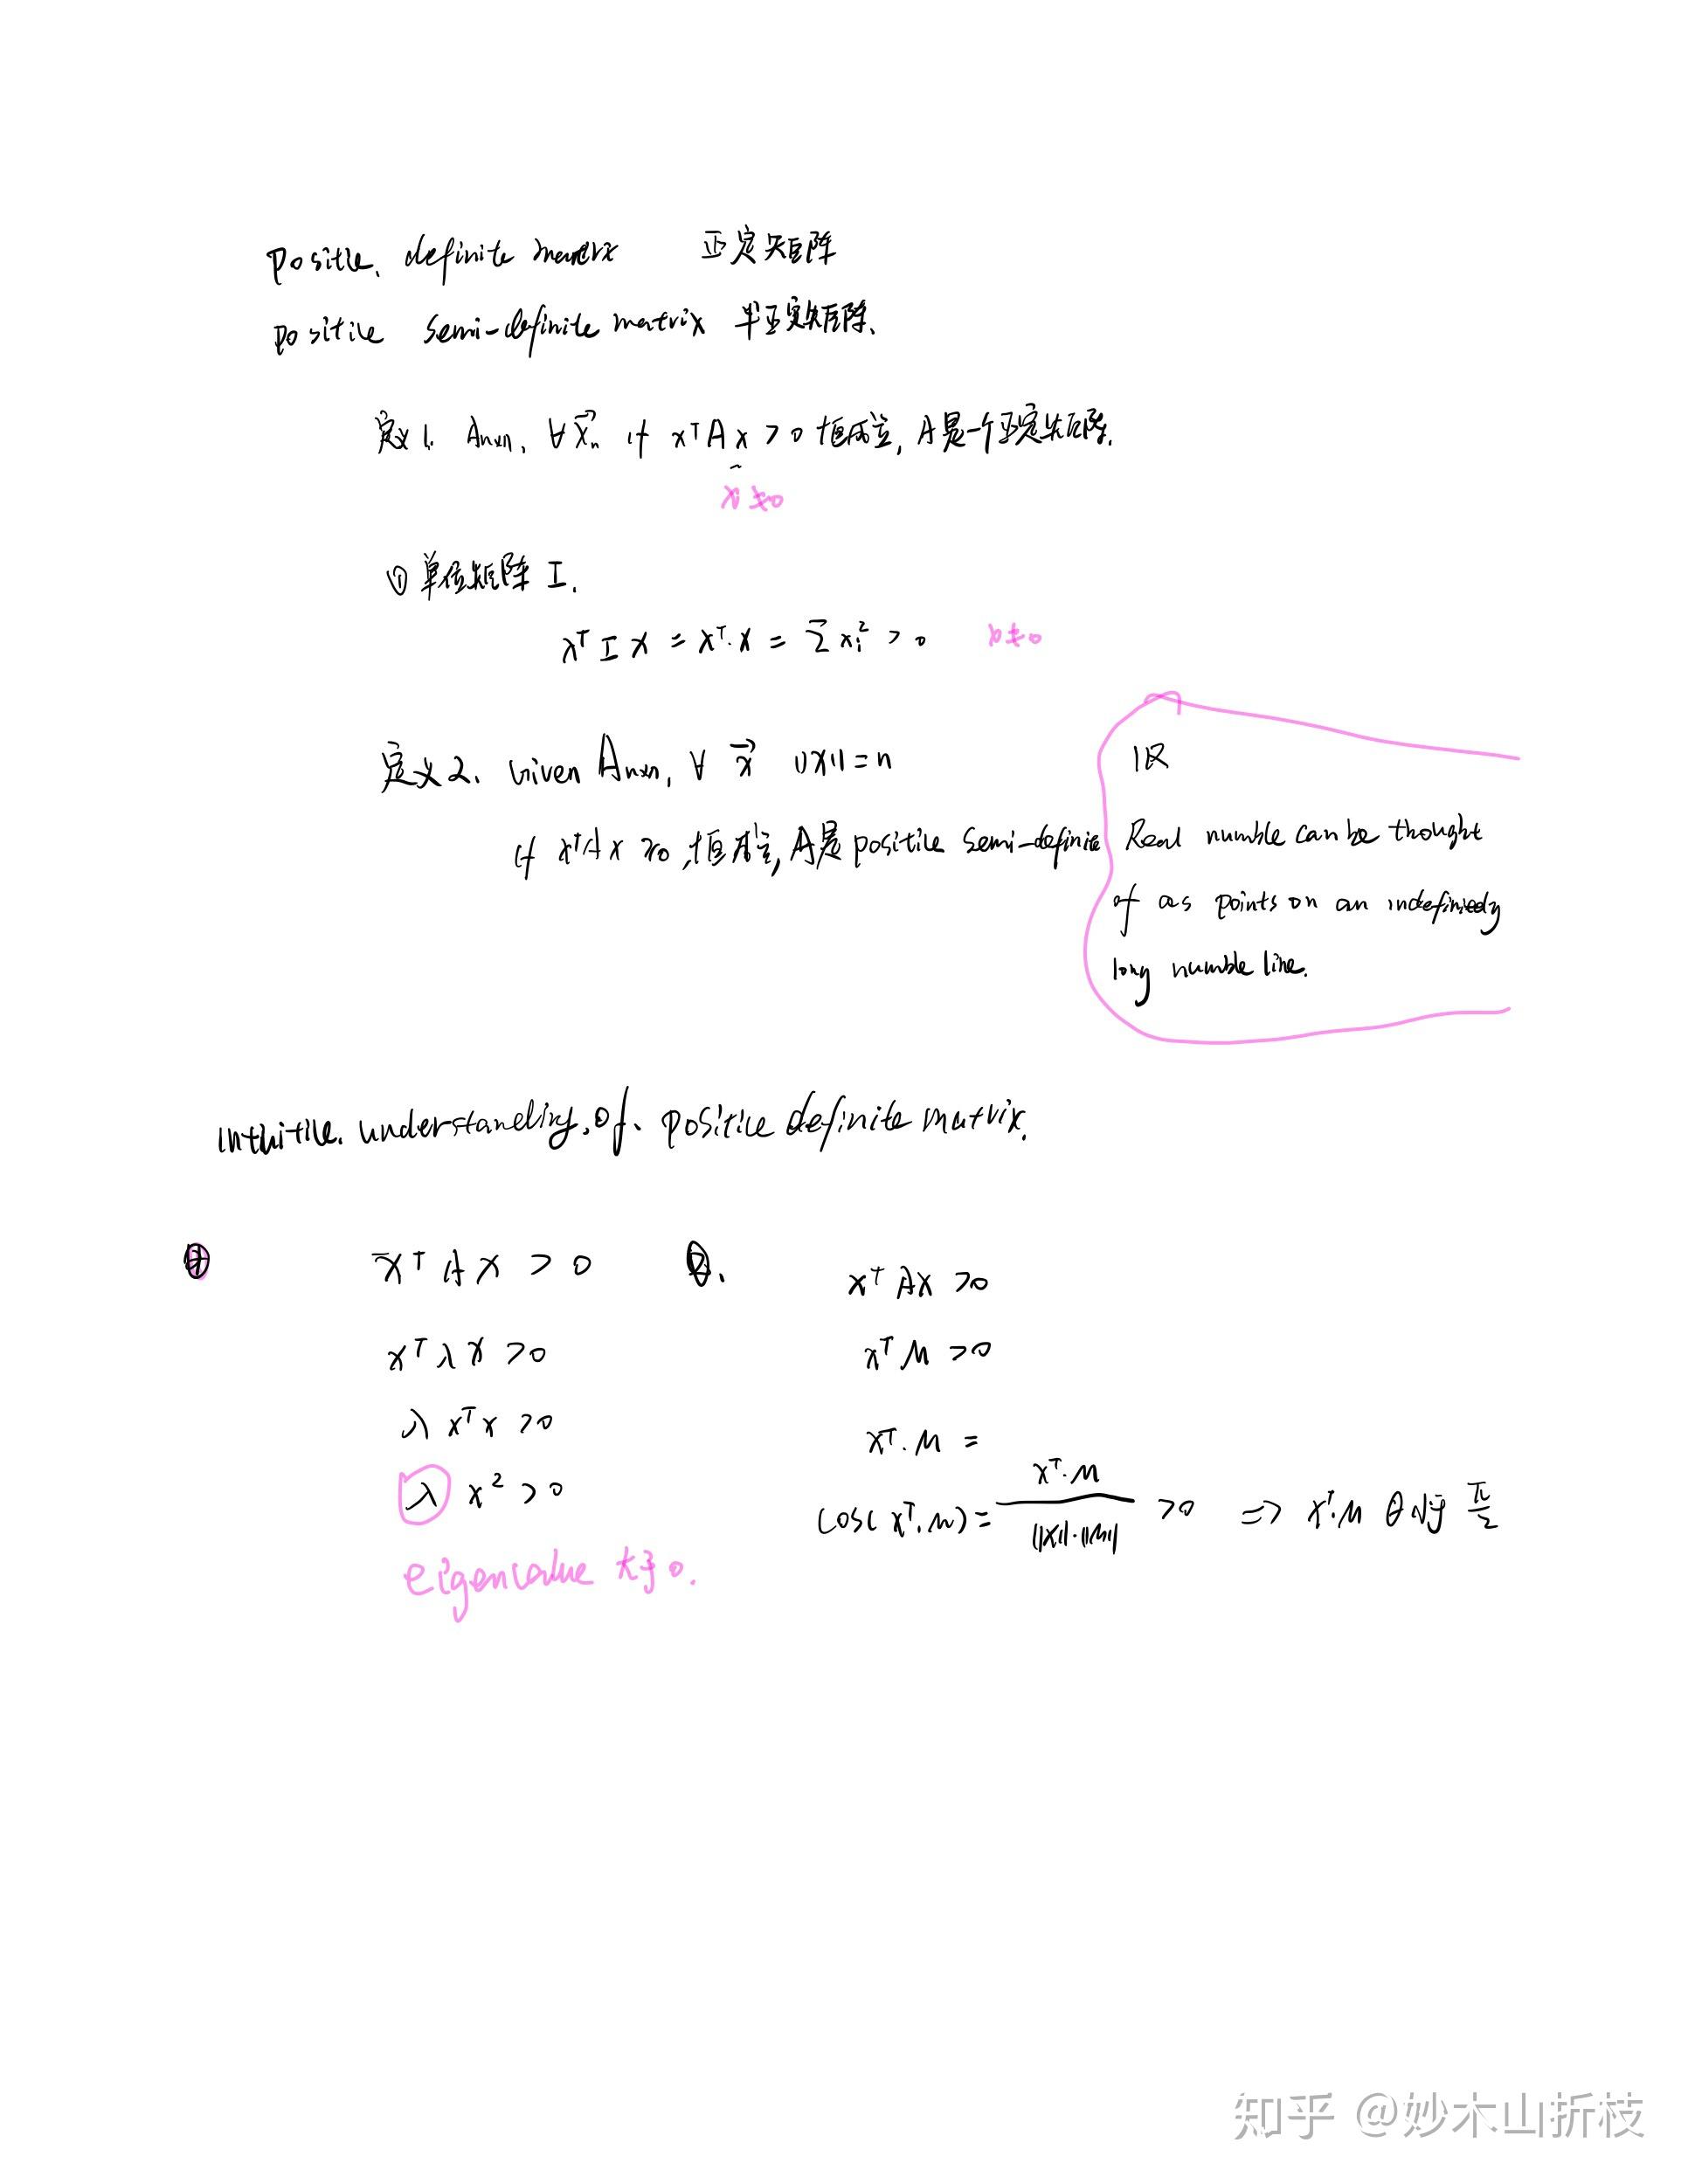 positive definite matrix 正定矩阵
positive semi-definite matrix 半正定矩阵.
定义1. Aₙₓₙ, ∀ x⃗ₙ if xᵀAx > 0 恒成立, A是一个正定矩阵.
x ≠ 0
① 单位矩阵 I.
xᵀ I x = xᵀ·x = Σxᵢ² > 0 x ≠ 0
定义2. Given Aₙₓₙ, ∀ x⃗ ||x|| = n
if xᵀAx ≥ 0, 恒成立, A是 positive semi-definite
ℝ
Real numble can be thought
of as points on an indefinitedly
long numble line.
Intuitive understanding of positive definite matrix.
① xᵀAx > 0
xᵀλx > 0
λxᵀx > 0
λ x² > 0
eigenvalue 大于0.
②. xᵀAx > 0
xᵀM > 0
xᵀ·M =
cos(xᵀ·M) = xᵀ·M / ||x||·||M|| > 0 => xᵀ·M θ小于 π/2
知乎 @妙木山折枝